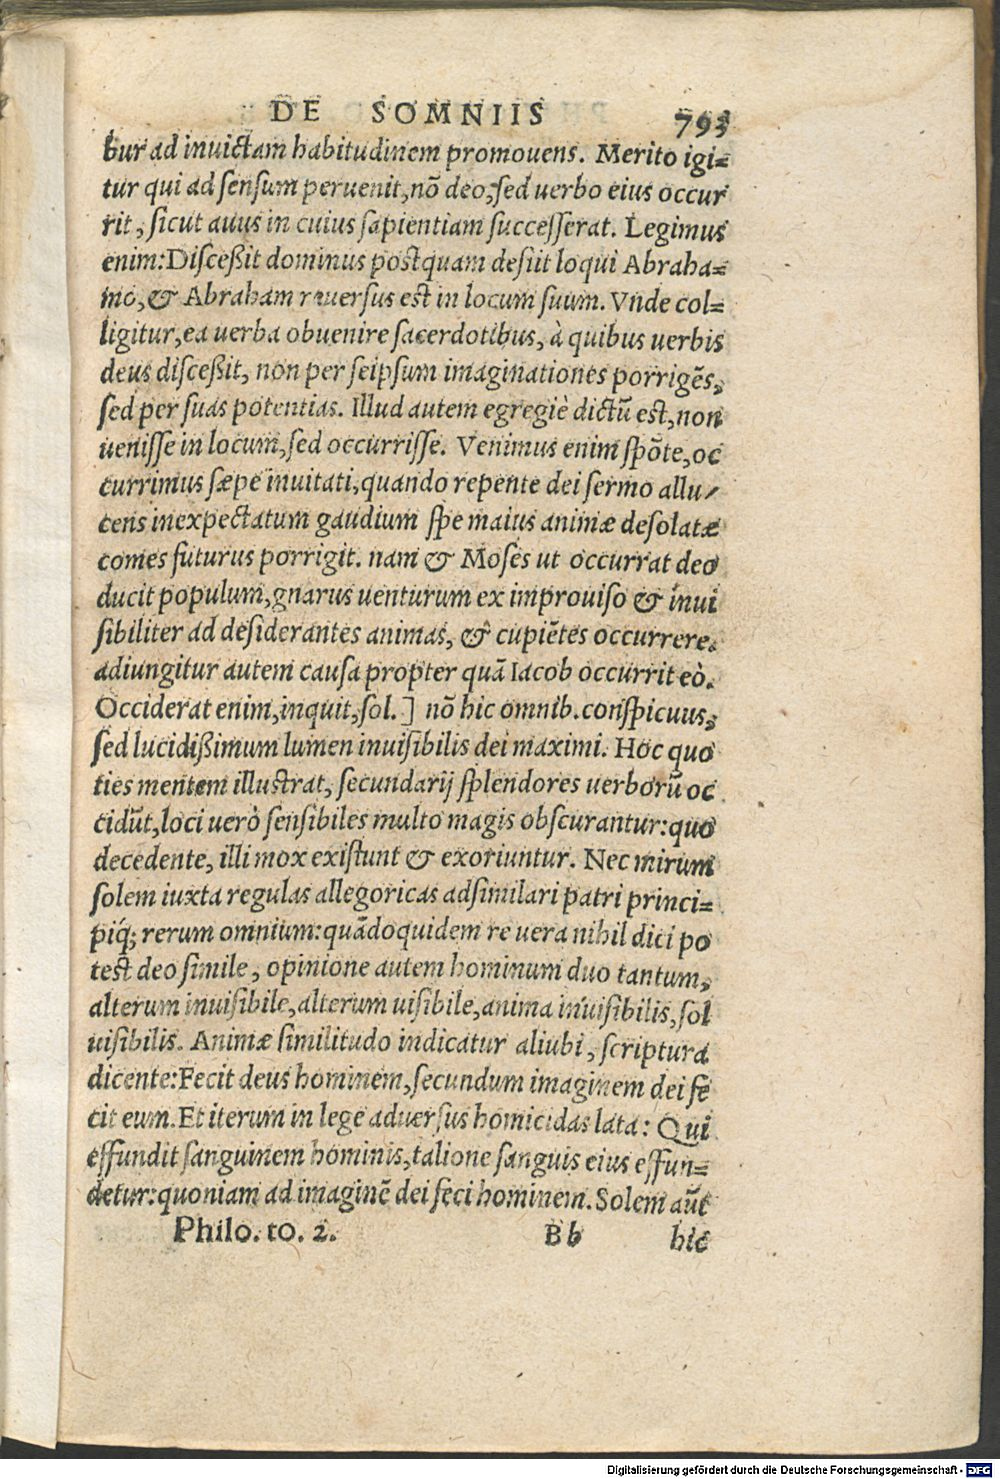 DE SOMNIIS 793
bur ad inuictam habitudinem promouens. Merito igi=
tur qui ad sensum peruenit, nō deo, sed uerbo eius occur
rit, sicut auus in cuius sapientiam successerat. Legimus
enim: Disceßit dominus postquam desiit loqui Abraha=
mo, & Abraham reuersus est in locum suum. Vnde col=
ligitur, ea uerba obuenire sacerdotibus, à quibus uerbis
deus disceßit, non per seipsum imaginationes porrigēs,
sed per suas potentias. Illud autem egregiè dictū est, non
uenisse in locum, sed occurrisse. Venimus enim spōte, oc
currimus sæpe inuitati, quando repente dei sermo allu/
cens inexpectatum gaudium spe maius animæ desolatæ
comes futurus porrigit. nam & Moses ut occurrat deo
ducit populum, gnarus uenturum ex improuiso & inui
sibiliter ad desiderantes animas, & cupiētes occurrere.
adiungitur autem causa propter quā Iacob occurrit eò.
Occiderat enim, inquit, sol.] nō hic omnib. conspicuus,
sed lucidißimum lumen inuisibilis dei maximi. Hoc quo
ties mentem illustrat, secundarij splendores uerborū oc
cidūt, loci uerò sensibiles multo magis obscurantur: quo
decedente, illi mox existunt & exoriuntur. Nec mirum
solem iuxta regulas allegoricas adsimilari patri princi=
piq́; rerum omnium: quādoquidem re uera nihil dici po
test deo simile, opinione autem hominum duo tantum,
alterum inuisibile, alterum uisibile, anima inuisibilis, sol
uisibilis. Animæ similitudo indicatur aliubi, scriptura
dicente: Fecit deus hominem, secundum imaginem dei fe
cit eum. Et iterum in lege aduersus homicidas lata: Qui
effundit sanguinem hominis, talione sanguis eius effun=
detur: quoniam ad imaginē dei feci hominem. Solem aūt
Philo. to. 2. Bb hic
Digitalisierung gefördert durch die Deutsche Forschungsgemeinschaft - DFG